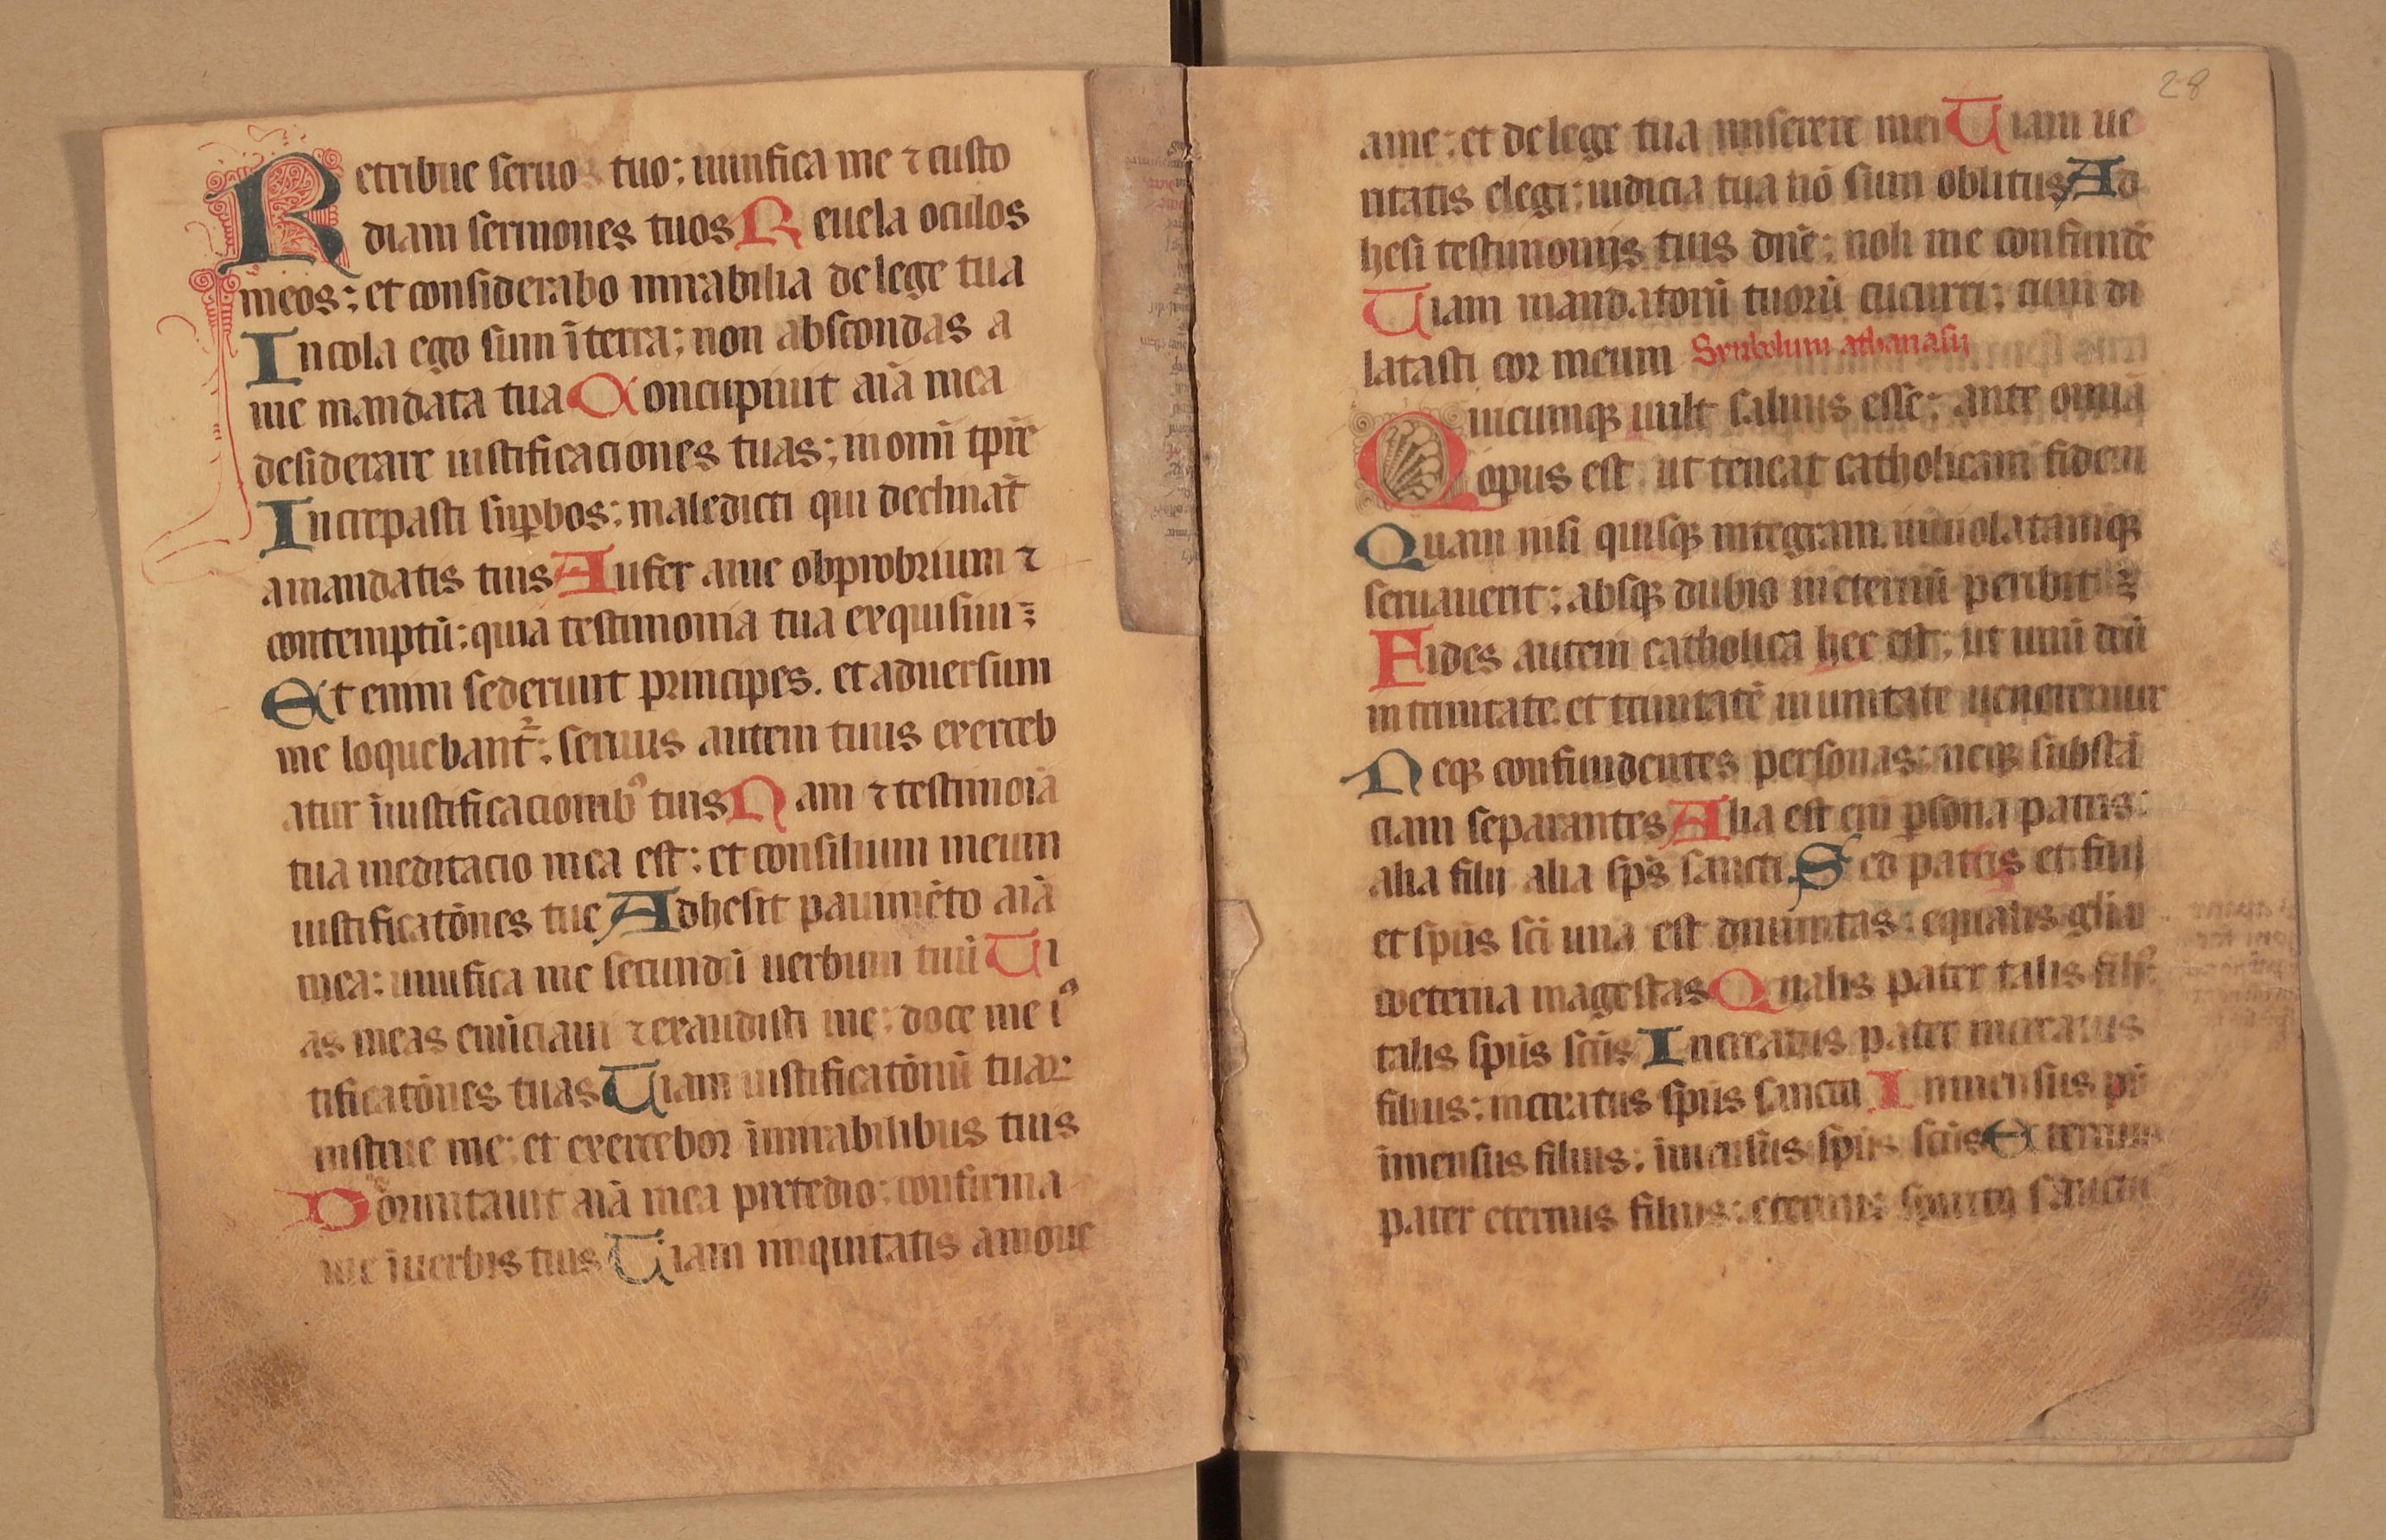 Retribue seruo tuo; uiuifica me ⁊ custo
diam sermones tuos Reuela oculos
meos; et considerabo mirabilia de lege tua
Incola ego sum ī terra; non abscondas a
me mandata tua Concupiuit aīā mea
desiderare iustificaciones tuas; in om̄i tp̄re
Increpasti sup̱bos; maledicti qui declināt
a mandatis tuis Aufer a me obprobrium ⁊
contemptū; quia testimonia tua exquisiui
Et enim sederunt principes. et aduersum
me loquebant̄; seruus autem tuus exerceb
atur ī iustificacionibꝰ tuis Nam ⁊ testimoīa
tua meditacio mea est; et consilium meum
iustificatōnes tue Adhesit pauimēto aīā
mea; uiuifica me secundū uerbum tuū Ui
as meas enūciaui ⁊ exaudisti me; doce me iꝰ
tificatōnes tuas Uiam iustificatōnū tuaꝝ
instrue me; et exercebor ī mirabilibus tuis
Dormitauit aīā mea pre tedio; confirma
me ī uerbis tuis Uiam iniquitatis amoue
28
a me; et de lege tua miserere mei Uiam ue
ritatis elegi; iudicia tua nō sum oblitus Ad
hesi testimonijs tuis dn̄e; noli me confundē
Uiam mandatorū tuorū cucurri; cum di
latasti cor meum Symbolum athanasij
Quicumqꝫ uult saluus esse; ante omīa
opus est ut teneat catholicam fidem
Quam nisi quisqꝫ integram inuiolatamqꝫ
seruauerit; absqꝫ dubio in eternū peribit
Fides autem catholica hec est; ut unū deū
in trinitate et trinitatē in unitate ueneremur
Neqꝫ confundentes personas; neqꝫ substā
ciam separantes Alia est eni p̱sona patris
alia filii alia sp̄s sancti Sed patris et filij
et sp̄us sc̄i una est diuinitas; equalis gl̄ia
coeterna magestas Qualis pater talis filiꝰ
talis sp̄us sc̄us Increatus pater increatus
filius; increatus sp̄us sanctus Inmensus pr̄
īmensus filius; īmensus sp̄us sc̄us Eternus
pater eternus filius; eternus spiritus sanctus